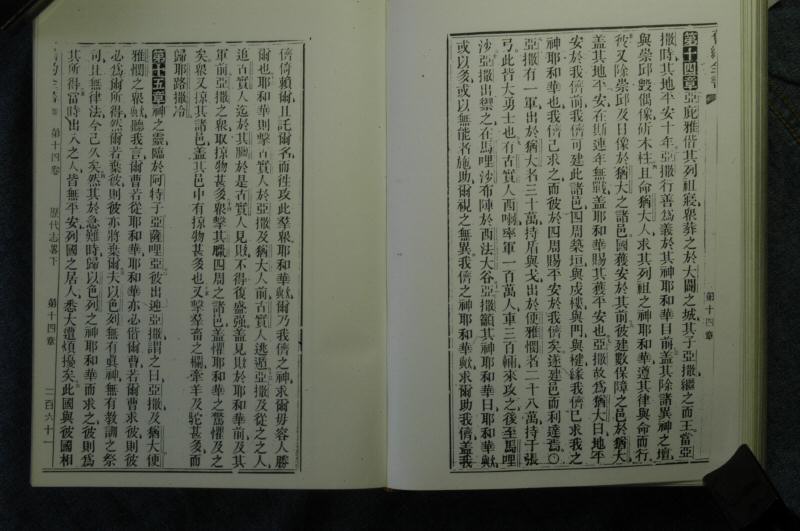 第十四章亞庇雅偕其列祖寢衆葬之於大闢之城其子亞撒繼之而王當亞
撒時其地平安十年亞撒行善爲義於其神耶和華目前蓋其除諸異神之壇
與崇邱毀偶像斫木柱且命猶大人求其列祖之神耶和華遵其律與命而行
彼又除崇邱及日像於猶大之諸邑國獲安於其前彼建數保障之邑於猶大
蓋其地平安在斯連年無戰蓋耶和華賜其獲平安也亞撒故爲猶大曰地平
安於我儕前我儕可建此諸邑四周築垣與戍樓與門與楗緣我儕已求我之
神耶和華也我儕已求之而彼於四周賜平安於我儕矣遂建邑而利達焉○
亞撒有一軍出於猶大名三十萬持盾與戈出於便雅憫名二十八萬持干張
弓此皆大勇士也有古實人西喇率軍一百萬人車三百輛來攻之後至馬哩
沙亞撒出禦之在馬哩沙布陣於西法大谷亞撒籲其神耶和華曰耶和華歟
或以多或以無能者施助爾視之無異我儕之神耶和華歟求爾助我儕蓋我
第十四章
儕倚賴爾且託爾名而徃攻此羣衆耶和華歟爾乃我儕之神求爾毋容人勝
爾也耶和華則擊古實人於亞撒及猶大人前古實人逃遁亞撒及從之之人
追古實人迄於其臘於是古實人見敗不得復盛強蓋見敗於耶和華前及其
軍前亞撒之衆取掠物甚多衆擊其臘四周之諸邑蓋懼耶和華之驚懼及之
矣衆又掠其諸邑蓋其邑中有掠物甚多也又擊羣畜之欄牽羊及駝甚多而
歸耶路撒冷
第十五章神之靈臨於阿特子亞薩哩亞彼出迎亞撒謂之曰亞撒及猶大便
雅憫之衆歟聽我言爾曹若從耶和華耶和華亦必偕爾曹若爾曹求彼則彼
必爲爾所得然爾若棄彼則彼亦將棄爾夫以色列無有眞神無有敎訓之祭
司且無律法今已久矣然其於急難時歸以色列之神耶和華而求之彼則爲
其所得當時出入之人皆無平安列國之居人悉大遭煩擾矣此國與彼國相
第十四卷 歷代志畧下 第十四章 二百六十一